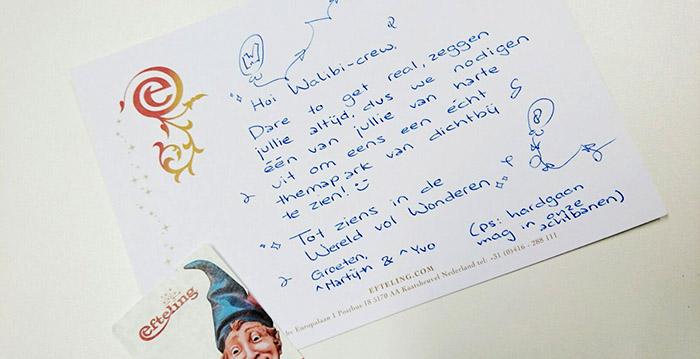 Hoi Walibi-crew,
Dare to get real, zeggen
jullie altijd, dus we nodigen
één van jullie van harte
uit om eens een écht
themapark van dichtbij
te zien! ☺
Tot ziens in de
Wereld vol Wonderen
Groeten,
Martijn & Yvo
(ps: hardgaan
mag in onze
achtbanen)
EFTELING.COM
Europalaan 1 Postbus 18 5170 AA Kaatsheuvel Nederland tel: +31 (0)416 - 288 111
efteling